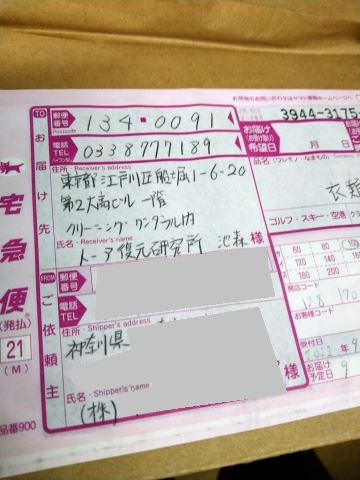 お荷物のお問い合わせはヤマト運輸ホームページへ
3944-3175
TO
お届け先
郵便番号
Postcode
134-0091
電話 TEL
0338777189
住所・Receiver's address
東京都江戸川区船堀1-6-20
第2大高ビル 一階
クリーニング ワンダフル内
氏名・Receiver's name
トーア復元研究所 池森 様
お届け希望日
月 日
品名(ワレモノ・なまもの)
衣類
ゴルフ・スキー・空港
60 80
120 140
160 180 200
発店コード
128 170
お客様コード
受付日
お届け予定日
9
FROM
ご依頼主
郵便番号
電話 TEL
住所・Shipper's address
神奈川県
氏名・Shipper's name
様
(株)
宅急便
(発払)
21
(M)
品番900